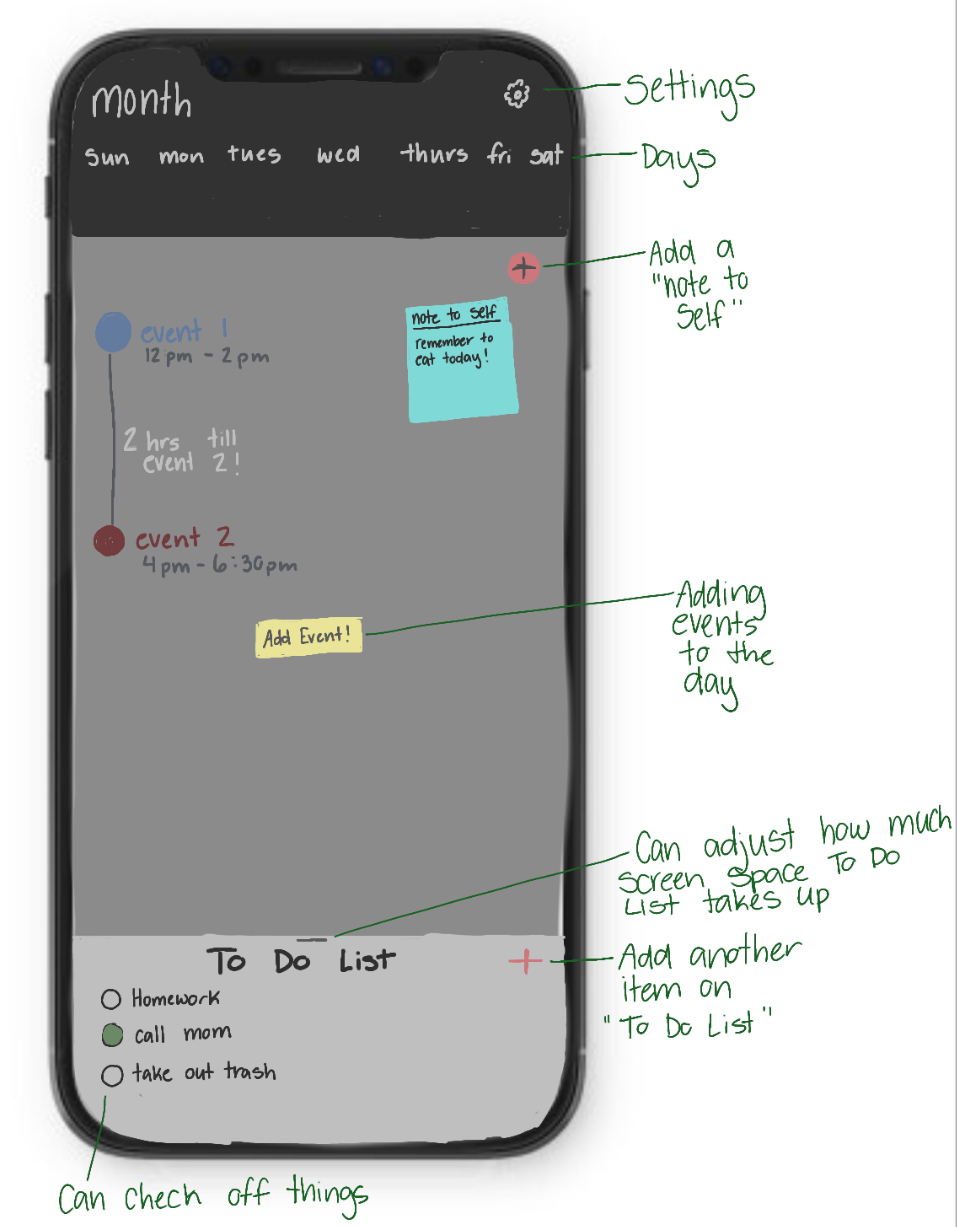 month
Settings
sun mon tues wed thurs fri sat
Days
+
Add a
"note to
Self"
note to self
remember to
eat today!
event 1
12pm - 2pm
2 hrs till
event 2!
event 2
4pm - 6:30pm
Add Event!
Adding
events
to the
day
Can adjust how much
screen space To Do
List takes up
To Do List
+
Add another
item on
"To Do List"
Homework
call mom
take out trash
Can check off things